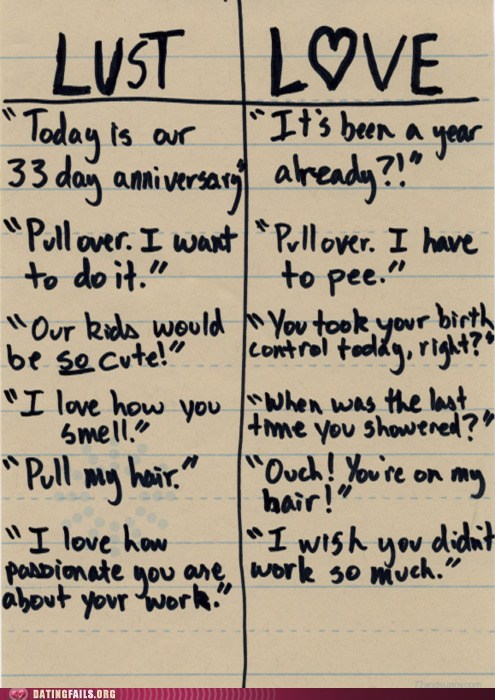 LUST
LOVE
"Today is our
33 day anniversary"
"It's been a year
already?!"
"Pull over. I want
to do it."
"Pull over. I have
to pee."
"Our kids would
be so cute!"
"You took your birth
control today, right?"
"I love how you
smell."
"When was the last
time you showered?"
"Pull my hair."
"Ouch! You're on my
hair!"
"I love how
passionate you are
about your work."
"I wish you didn't
work so much."
DATINGFAILS.ORG